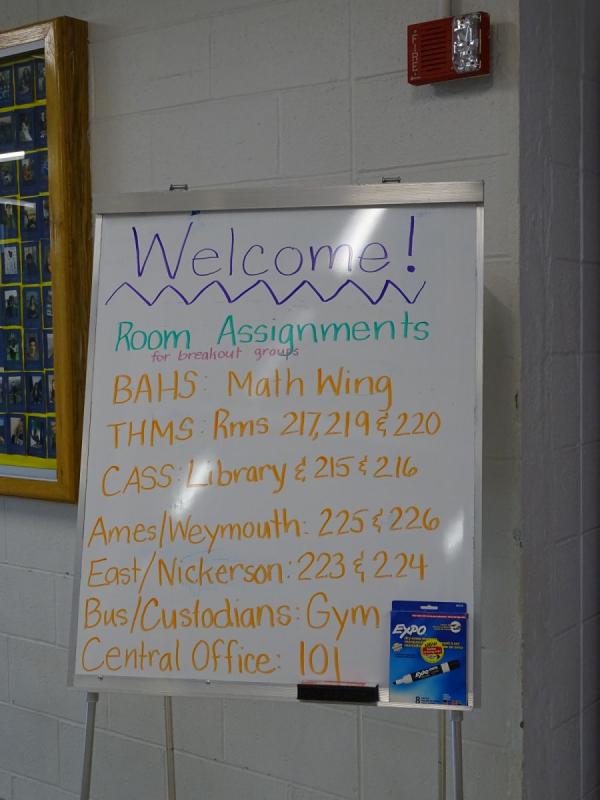 FIRE
Welcome!
Room Assignments
for breakout groups
BAHS: Math Wing
THMS: Rms 217, 219 & 220
CASS: Library & 215 & 216
Ames/Weymouth: 225 & 226
East/Nickerson: 223 & 224
Bus/Custodians: Gym
Central Office: 101
EXPO
8